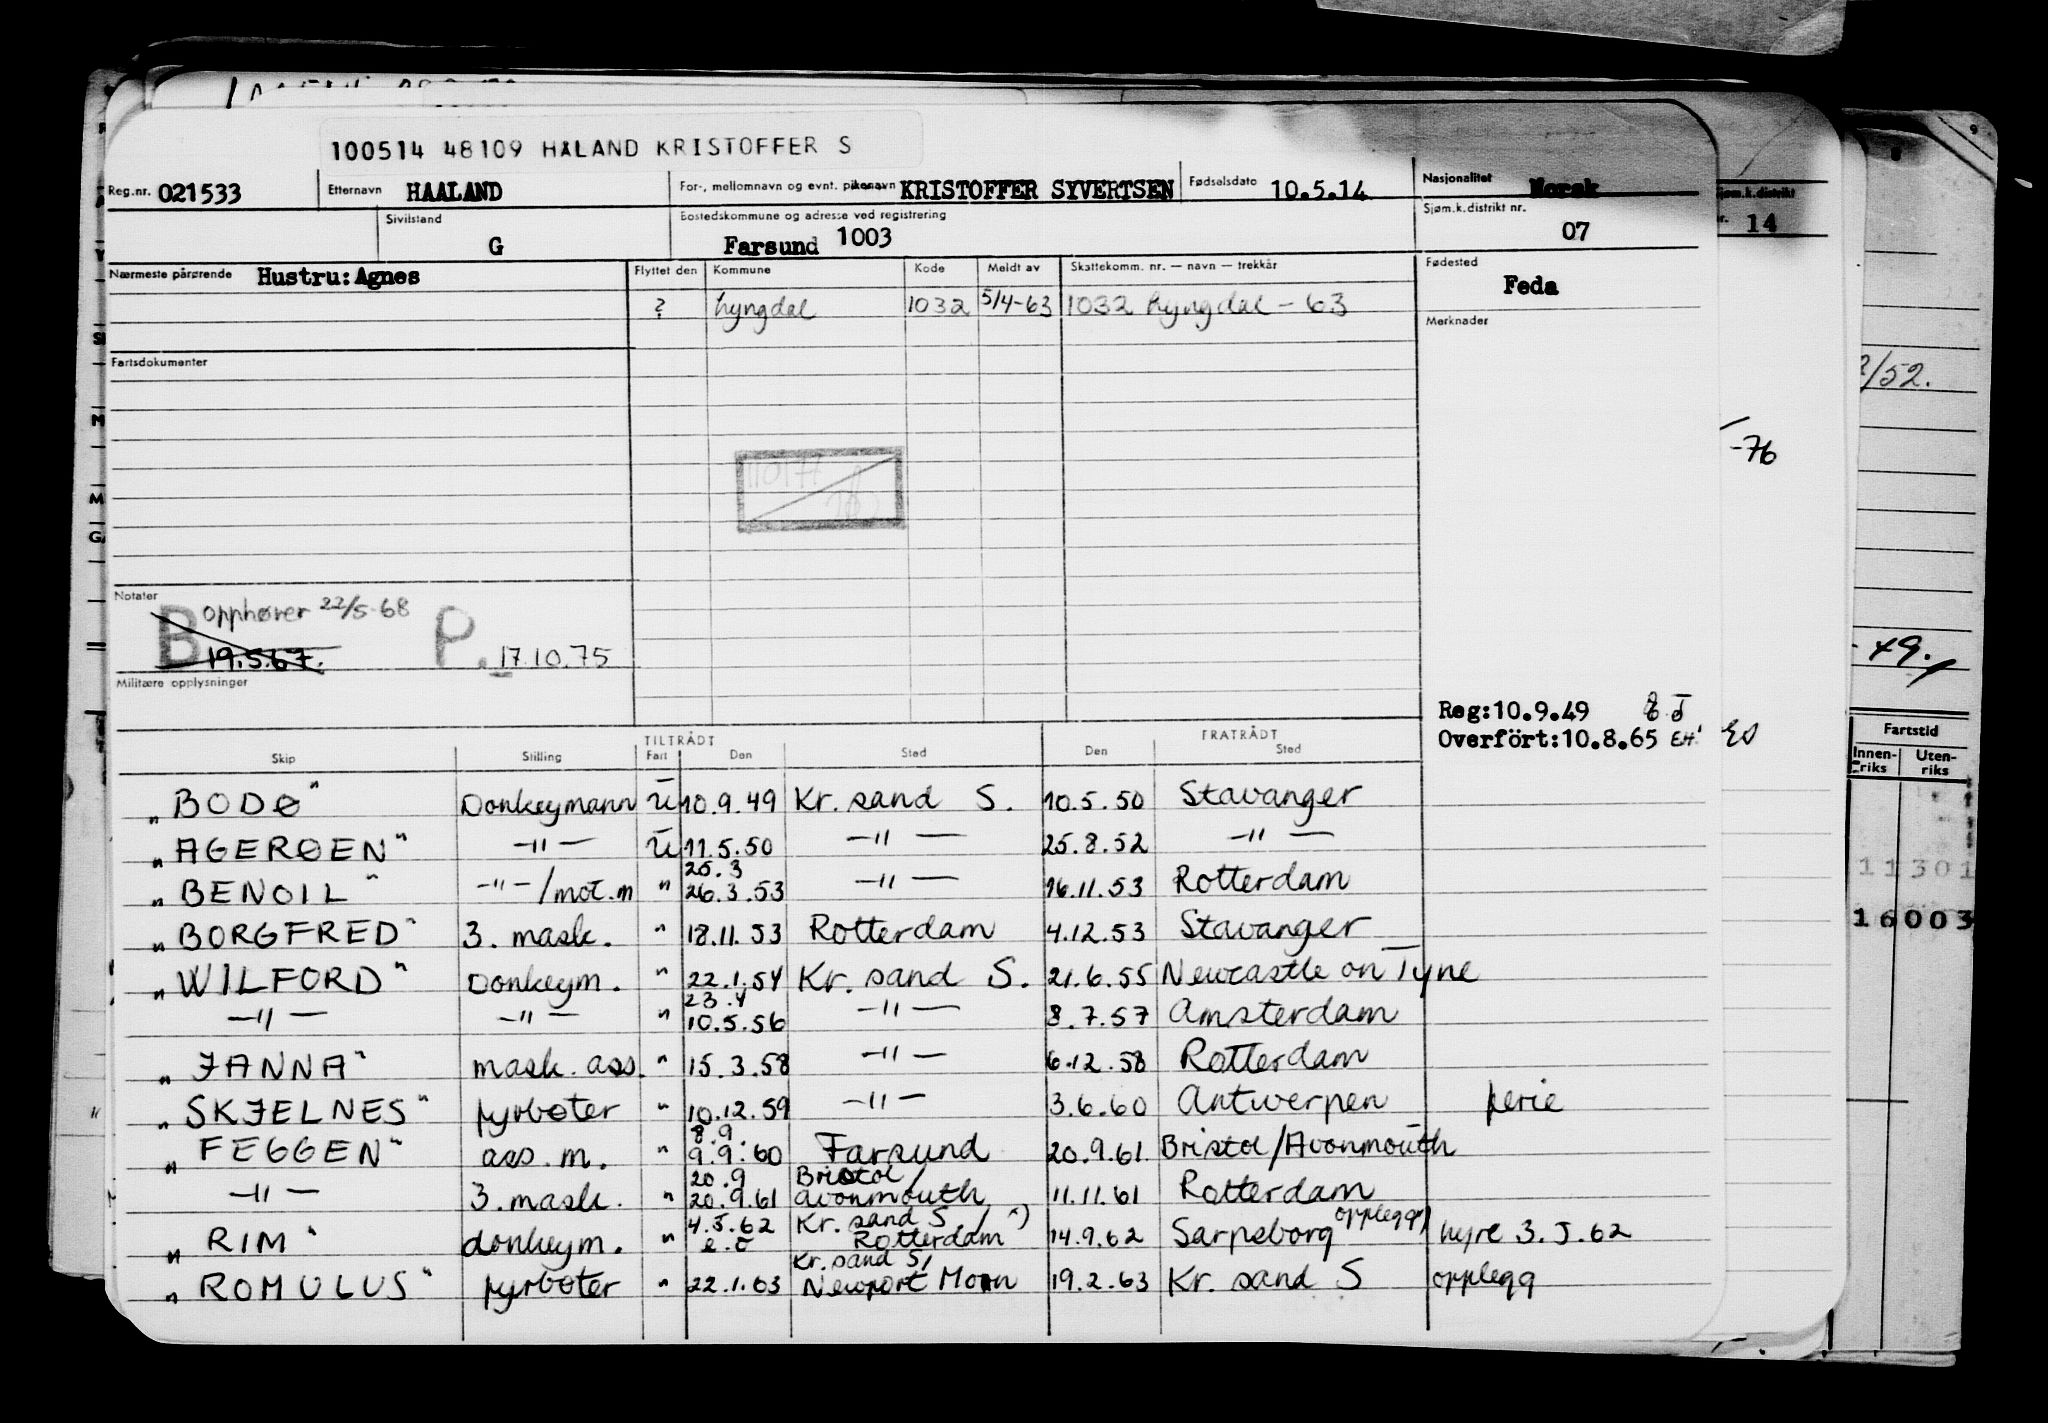 100514 48109 HALAND KRISTOFFER S
Reg.nr. 021533 Etternavn HAALAND For-, mellomnavn og evnt. pikenavn KRISTOFFER SYVERTSEN Fødselsdato 10.5.14 Nasjonalitet Norsk
Sivilstand G Bostedskommune og adresse ved registrering Farsund 1003 Sjøm.k.distrikt nr. 07
Sjøm.k.distrikt nr. 14
Nærmeste pårørende Hustru: Agnes Flyttet den Kommune Kode Meldt av Skattekomm. nr. — navn — trekkår Fødested Feda
? Lyngdal 1032 5/4-63 1032 Lyngdal - 63
Merknader
Fartsdokumenter
/52.
-76
110177
Notater
B opphører 22/5-68 P. 17.10.75
19.5.67.
-49.
Militære opplysninger
Reg:10.9.49
Overfört:10.8.65 EH.
TILTRÅDT FRATRÅDT
Skip Stilling Fart Den Sted Den Sted
Fartstid
Innen-riks Uten-riks
"BODØ" Donkeymann U 10.9.49 Kr. sand S. 10.5.50 Stavanger
"AGERØEN" -"- U 11.5.50 -"- 25.8.52 -"-
"BENOIL" -"-/mot.m " 25.3 26.3.53 -"- 16.11.53 Rotterdam
"BORGFRED" 3. mask. " 18.11.53 Rotterdam 4.12.53 Stavanger
"WILFORD" Donkeym. " 22.1.54 Kr. sand S. 21.6.55 Newcastle on Tyne
-"- -"- " 23.4 10.5.56 -"- 8.7.57 Amsterdam
"JANNA" mask. ass. " 15.3.58 -"- 6.12.58 Rotterdam
"SKJELNES" fyrbøter " 10.12.59 -"- 3.6.60 Antwerpen ferie
"FEGGEN" ass. m. " 8.9. 9.9.60 Farsund 20.9.61 Bristol/Avonmouth
-"- 3. mask. " 20.9 20.9.61 Bristol/Avonmouth 11.11.61 Rotterdam
"RIM" donkeym. " 4.5.62 Kr. sand S / Rotterdam 14.9.62 Sarpsborg opplegg hyre 3.5.62
"ROMULUS" fyrbøter " 22.1.63 Kr. sand S/ Newport Mon 19.2.63 Kr. sand S opplegg
11301
16003